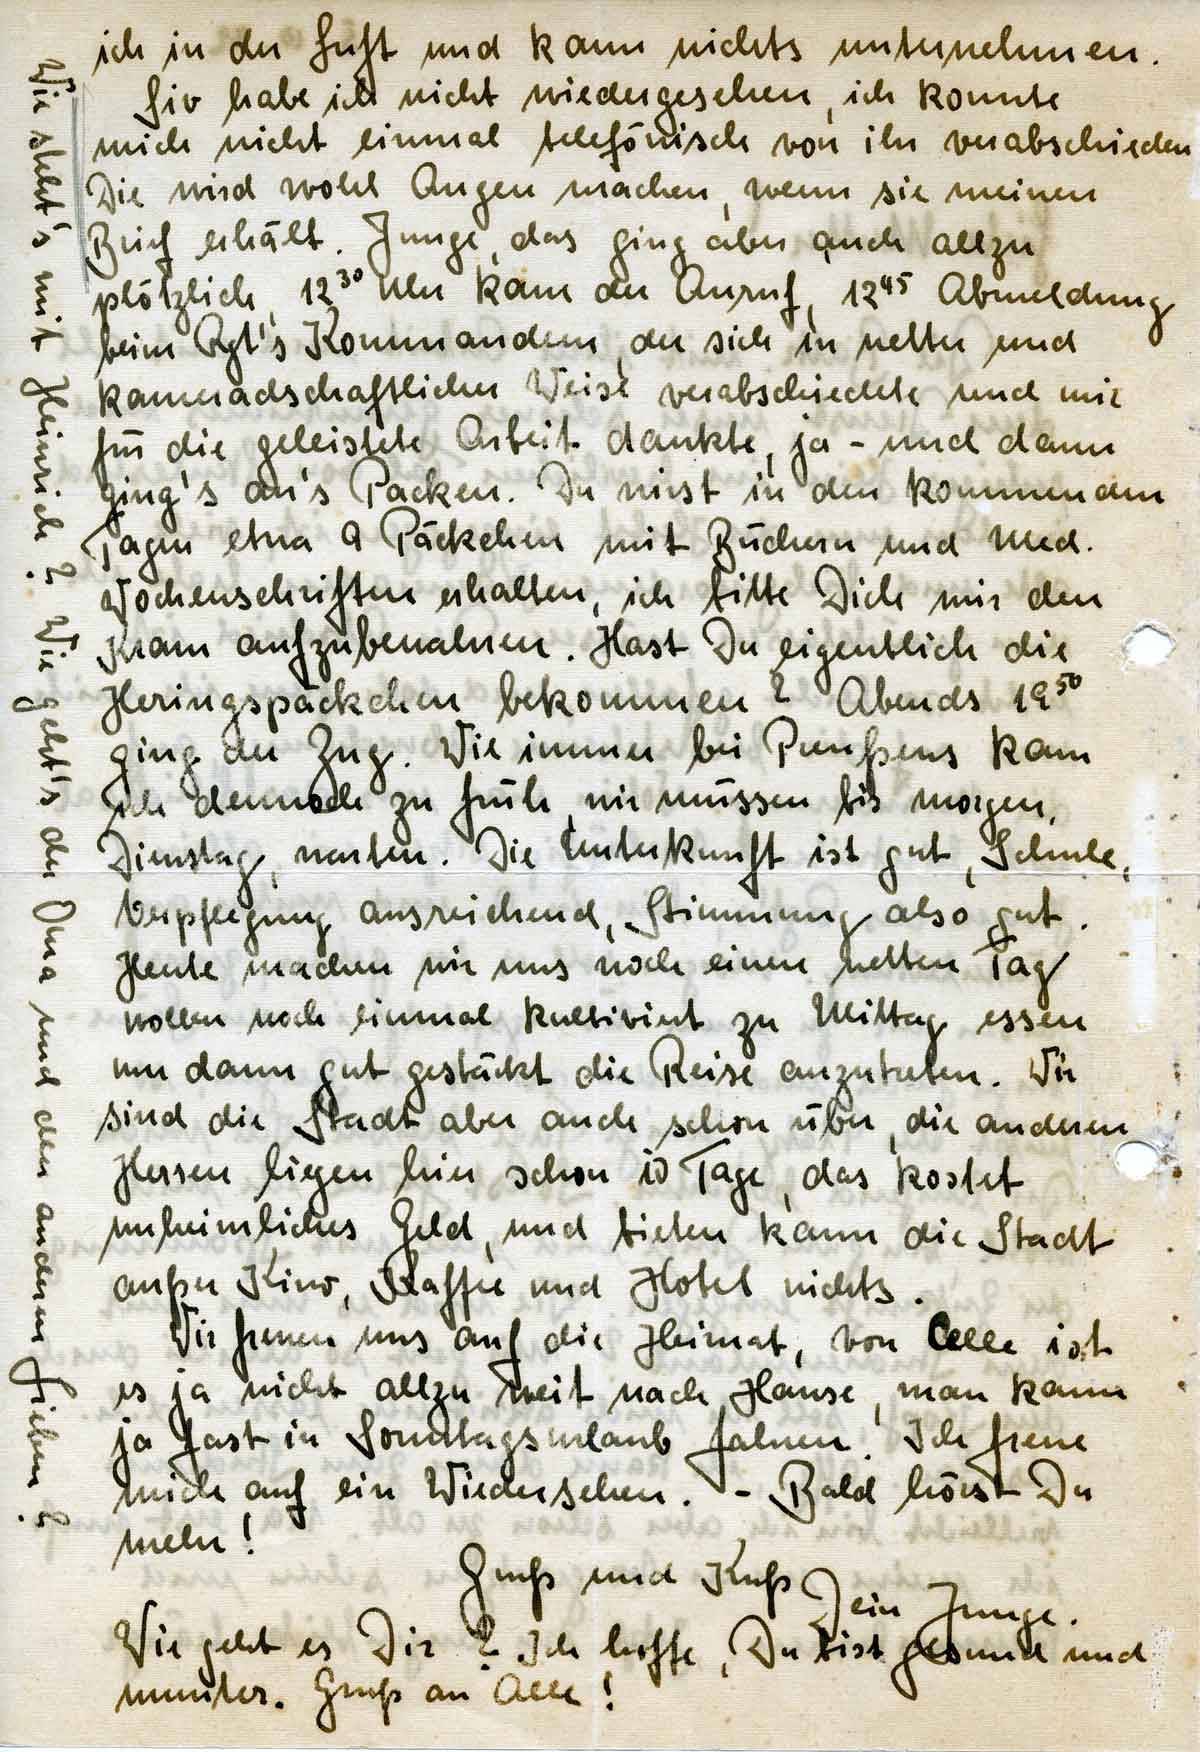 ich in der Luft und kann nichts unternehmen.
Siv habe ich nicht wiedergesehen, ich konnte
mich nicht einmal telefonisch von ihr verabschieden
Die wird wohl Augen machen, wenn sie meinen
Brief erhält. Junge, das ging aber auch allzu
plötzlich, 12³⁰ Uhr kam der Anruf, 12⁴⁵ Abmeldung
beim Rgt's Kommandeur, der sich in netter und
kameradschaftlicher Weise verabschiedete und mir
für die geleistete Arbeit dankte, ja - und dann
ging's an's Packen. Du wirst in den kommenden
Tagen etwa 9 Päckchen mit Büchern und Med.
Wochenschriften erhalten, ich bitte Dich mir den
Kram aufzubewahren. Hast Du eigentlich die
Heringspäckchen bekommen? Abends 19⁵⁰
ging der Zug. Wie immer bei Preußens kam
ich dennoch zu früh, wir müssen bis morgen,
Dienstag, warten. Die Unterkunft ist gut, Schule,
Verpflegung ausreichend, Stimmung also gut.
Heute machen wir uns noch einen netten Tag
wollen noch einmal kultiviert zu Mittag essen
um dann gut gestäckt die Reise anzutreten. Wir
sind die Stadt aber auch schon über, die anderen
Herren liegen hier schon 10 Tage, das kostet
unheimliches Geld, und bieten kann die Stadt
außer Kino, Kaffee und Hotel nichts.
Wir freuen uns auf die Heimat, von Celle ist
es ja nicht allzu weit nach Hause, man kann
ja fast in Sonntagsurlaub fahren. Ich freue
mich auf ein Wiedersehen. - Bald hörst Du
mehr!
Gruß und Kuß
Dein Junge.
Wie geht es Dir? Ich hoffe, Du bist gesund und
munter. Gruß an Alle!
Wie steht's mit Heinrich? Wie geht's der Oma und den anderen Lieben?